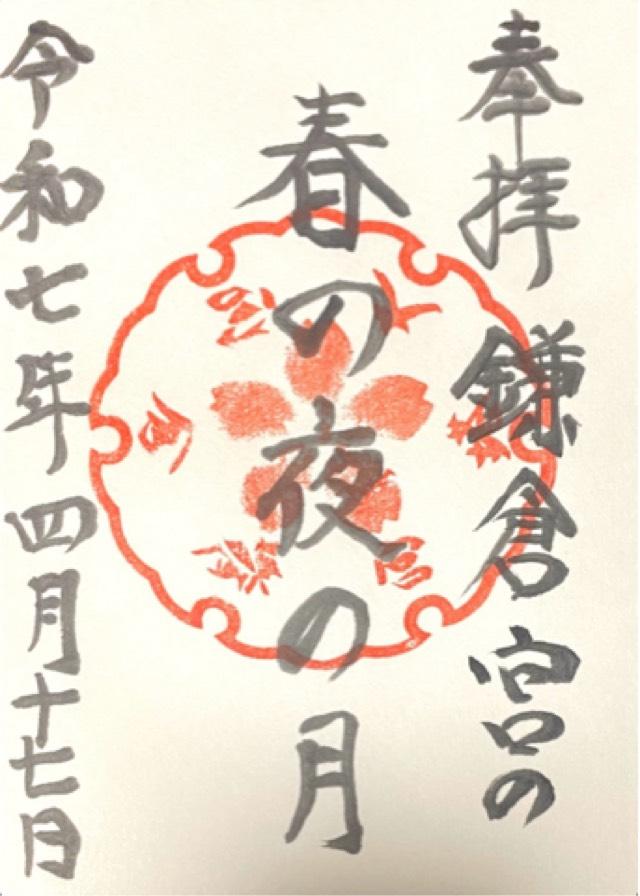 奉拝 鎌倉宮の
春の夜の月
令和七年四月十七日